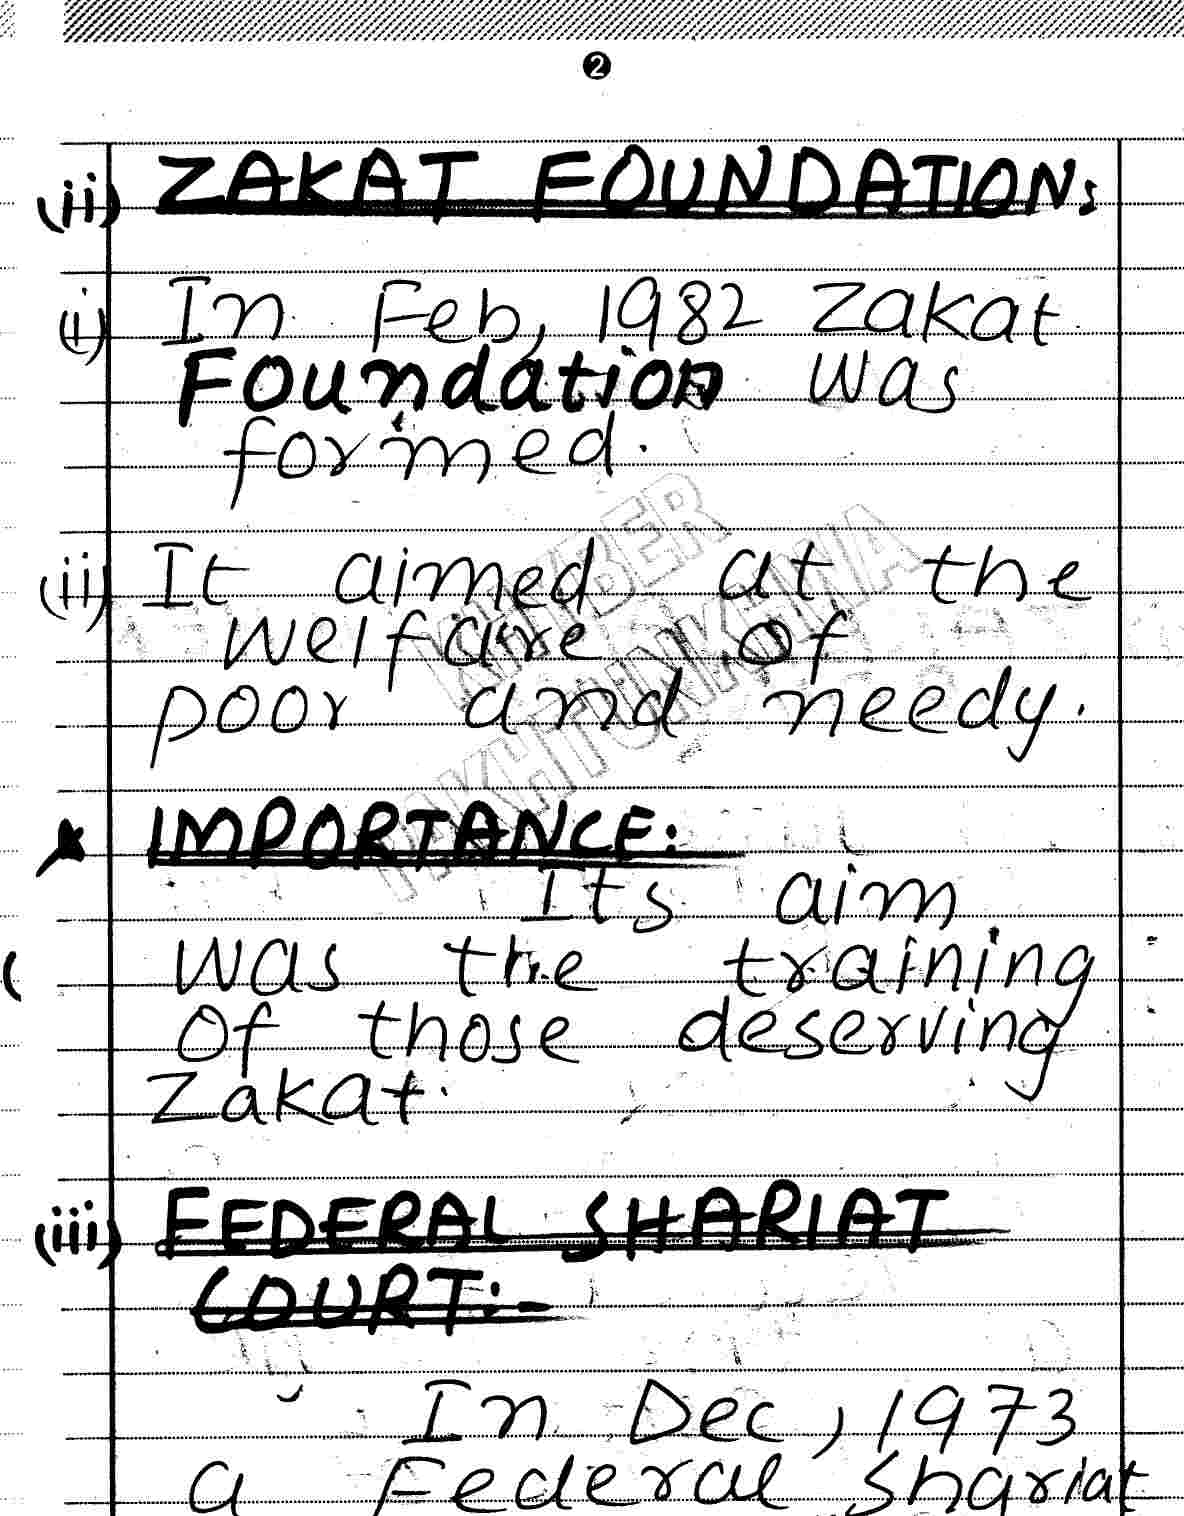 2
(ii) ZAKAT FOUNDATION:
(i) In Feb, 1982 Zakat
Foundation was
formed.
(ii) It aimed at the
welfare of
poor and needy.
KHYBER
PAKHTUNKHWA
IMPORTANCE:
Its aim
was the training
of those deserving
Zakat.
(iii) FEDERAL SHARIAT
COURT:-
In Dec, 1973
a Federal Shariat